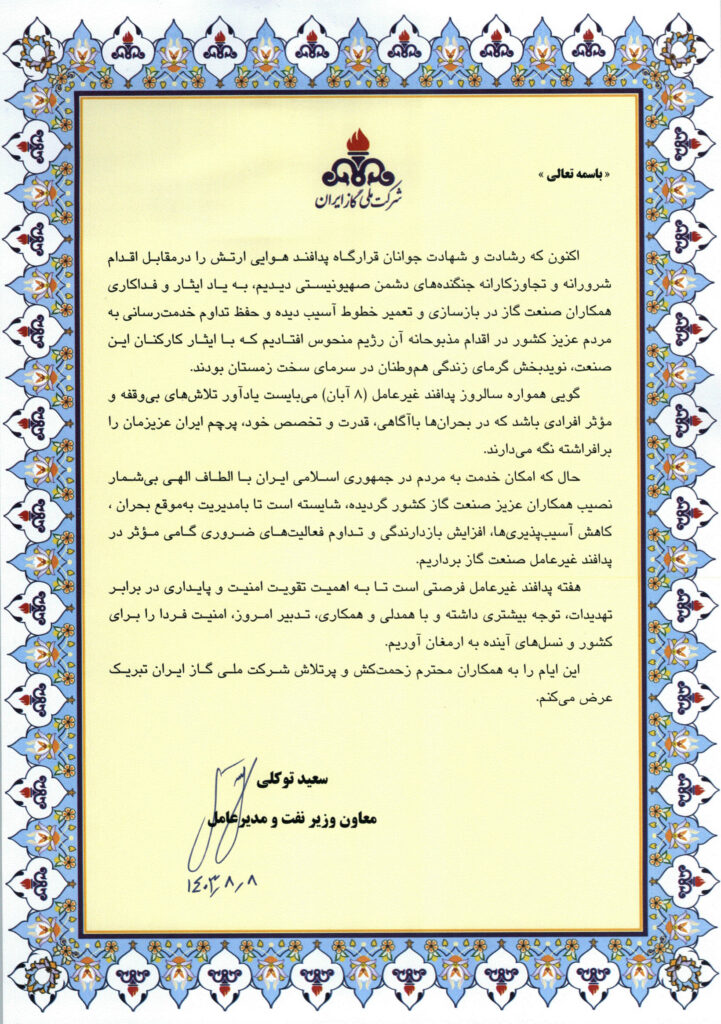 « باسمه تعالی »
شرکت ملی گاز ایران
اکنون که رشادت و شهادت جوانان قرارگاه پدافند هوایی ارتش را درمقابل اقدام
شرورانه و تجاوزکارانه جنگنده‌های دشمن صهیونیستی دیدیم، به یاد ایثار و فداکاری
همکاران صنعت گاز در بازسازی و تعمیر خطوط آسیب دیده و حفظ تداوم خدمت‌رسانی به
مردم عزیز کشور در اقدام مذبوحانه آن رژیم منحوس افتادیم که با ایثار کارکنان این
صنعت، نویدبخش گرمای زندگی هم‌وطنان در سرمای سخت زمستان بودند.
گویی همواره سالروز پدافند غیرعامل (۸ آبان) می‌بایست یادآور تلاش‌های بی‌وقفه و
مؤثر افرادی باشد که در بحران‌ها باآگاهی، قدرت و تخصص خود، پرچم ایران عزیزمان را
برافراشته نگه می‌دارند.
حال که امکان خدمت به مردم در جمهوری اسلامی ایران با الطاف الهی بی‌شمار
نصیب همکاران عزیز صنعت گاز کشور گردیده، شایسته است تا بامدیریت به‌موقع بحران ،
کاهش آسیب‌پذیری‌ها، افزایش بازدارندگی و تداوم فعالیت‌های ضروری گامی مؤثر در
پدافند غیرعامل صنعت گاز برداریم.
هفته پدافند غیرعامل فرصتی است تا به اهمیت تقویت امنیت و پایداری در برابر
تهدیدات، توجه بیشتری داشته و با همدلی و همکاری، تدبیر امروز، امنیت فردا را برای
کشور و نسل‌های آینده به ارمغان آوریم.
این ایام را به همکاران محترم زحمت‌کش و پرتلاش شرکت ملی گاز ایران تبریک
عرض می‌کنم.
سعید توکلی
معاون وزیر نفت و مدیرعامل
۱۴۰۳٫۸٫۸